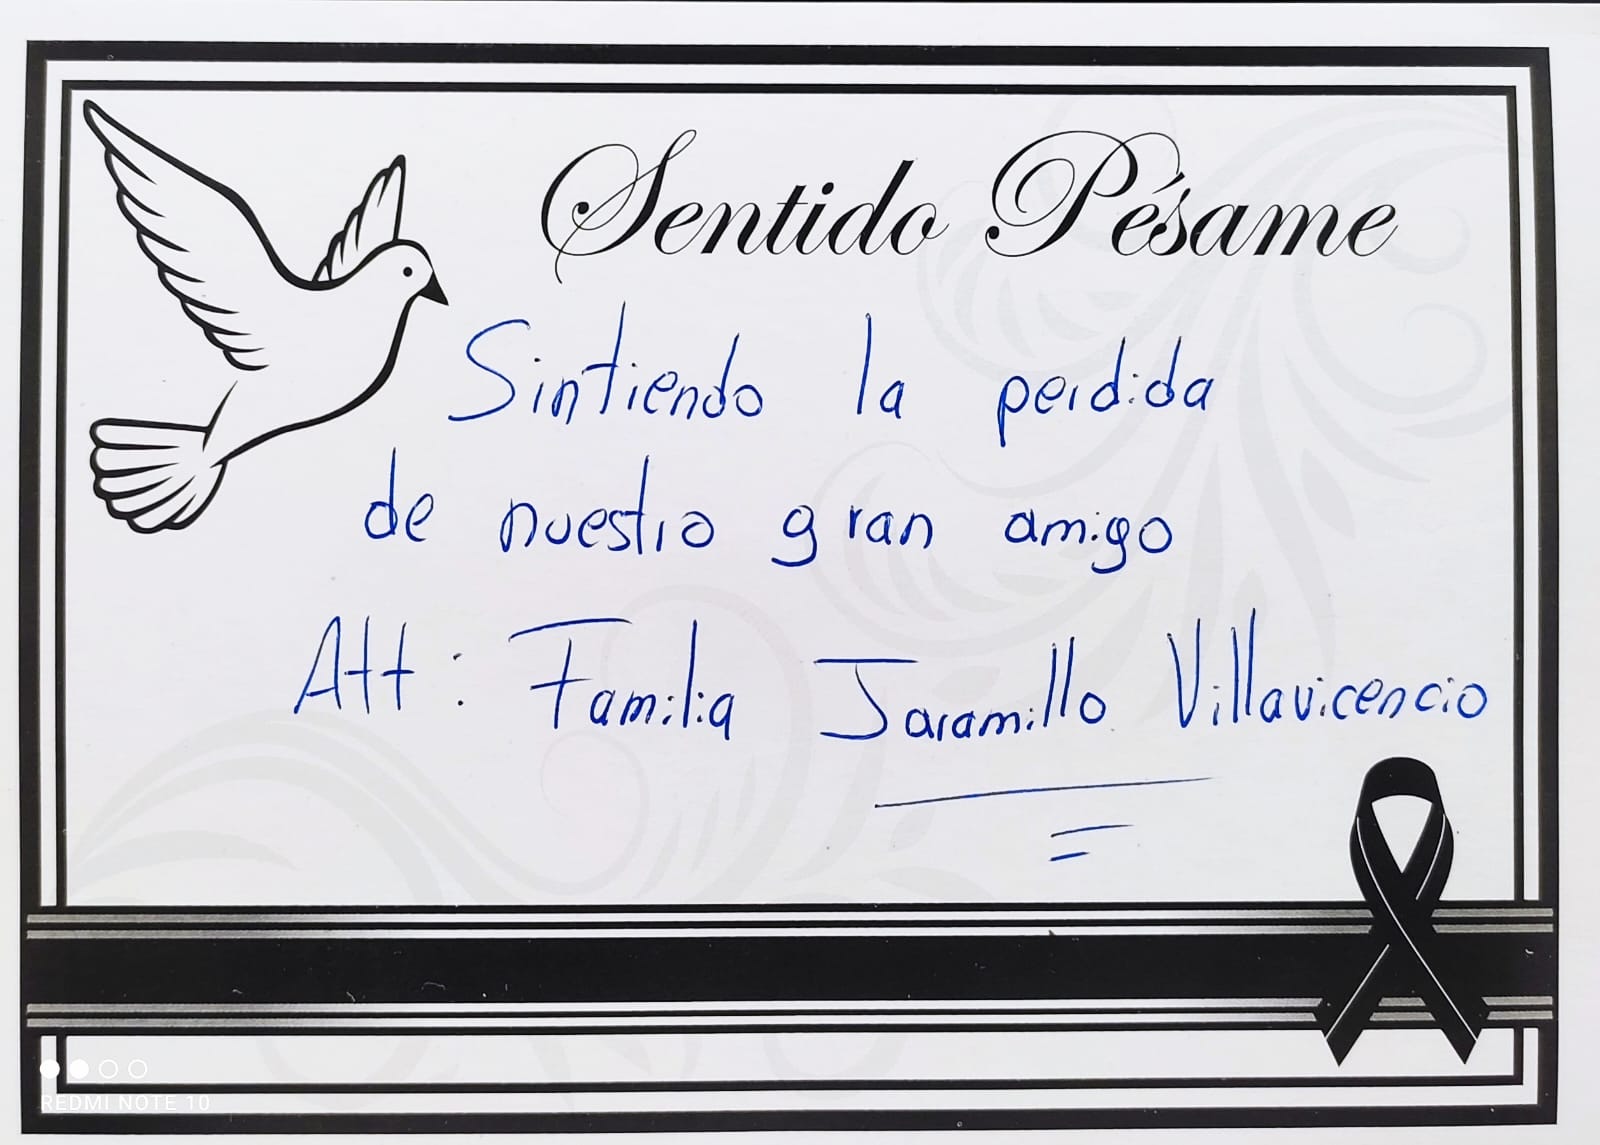 Sentido Pésame
Sintiendo la perdida
de nuestro gran amigo
Att: Familia Jaramillo Villavicencio
REDMI NOTE 10